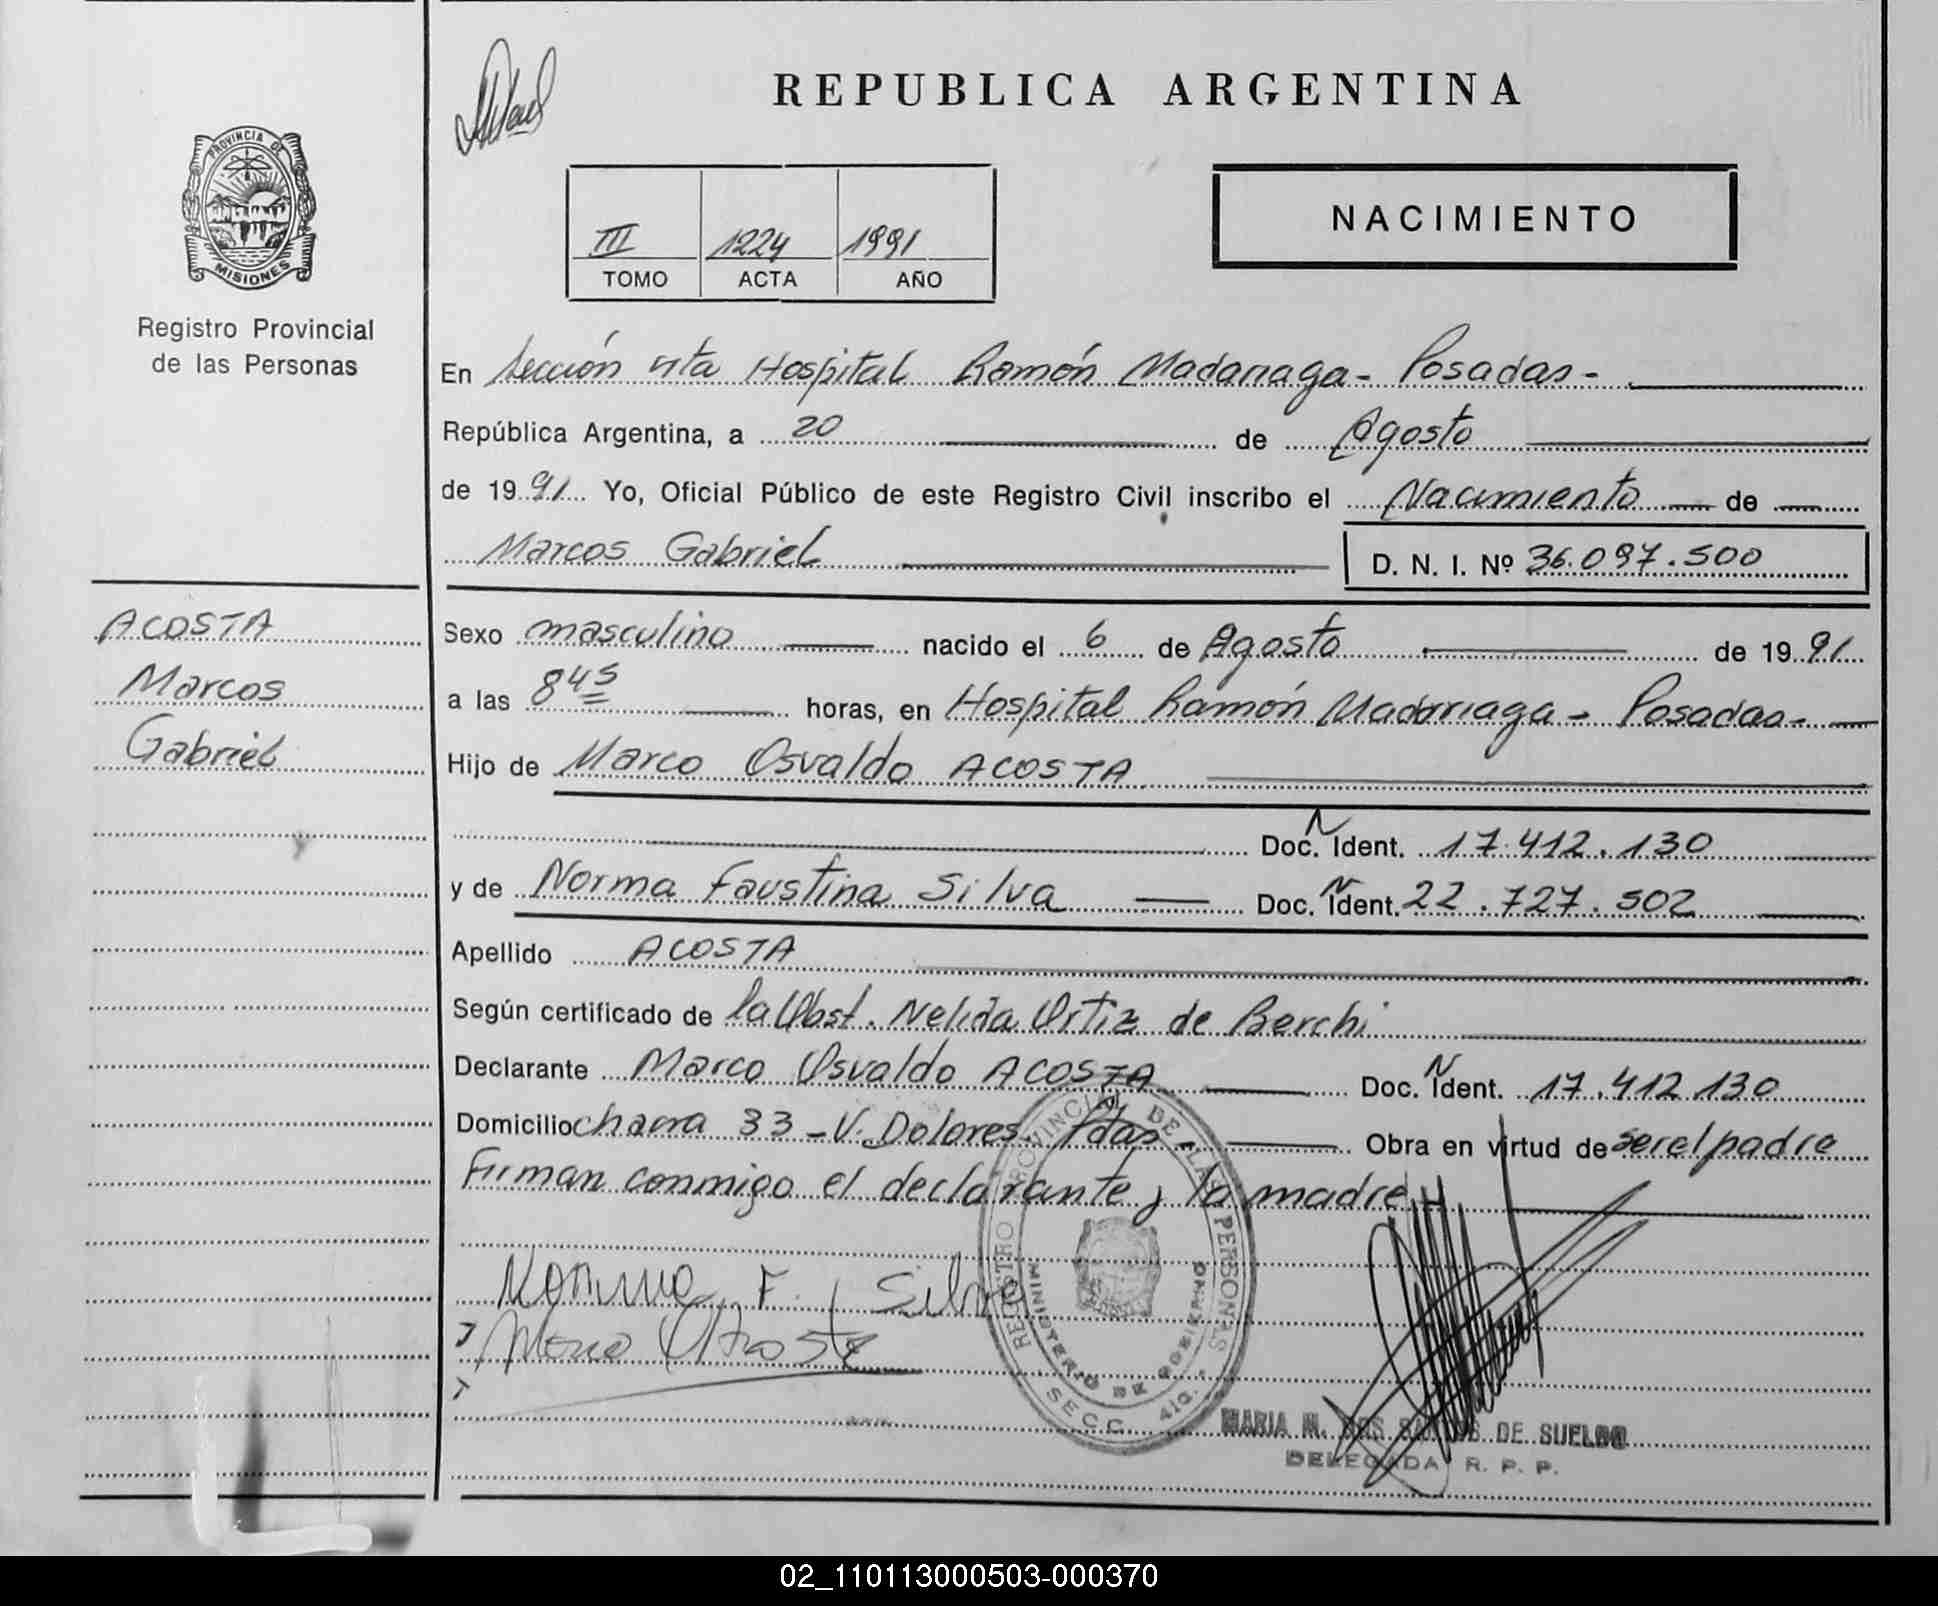 REPUBLICA ARGENTINA
PROVINCIA DE
MISIONES
Registro Provincial
de las Personas
III 1224 1991
TOMO ACTA AÑO
NACIMIENTO
En Sección 4ta Hospital Ramón Madariaga - Posadas -
República Argentina, a 20 de Agosto
de 1991 Yo, Oficial Público de este Registro Civil inscribo el Nacimiento de
Marcos Gabriel D. N. I. Nº 36.097.500
ACOSTA
Marcos
Gabriel
Sexo masculino nacido el 6 de Agosto de 1991
a las 8 45 horas, en Hospital Ramón Madariaga - Posadas -
Hijo de Marco Osvaldo ACOSTA
Doc. N Ident. 17.412.130
y de Norma Faustina Silva Doc. N Ident. 22.727.502
Apellido ACOSTA
Según certificado de la Obst. Nelida Ortiz de Berchi
Declarante Marco Osvaldo ACOSTA Doc. N Ident. 17.412.130
Domicilio chacra 33 - V. Dolores - Pdas - Obra en virtud de ser el padre
Firman conmigo el declarante y la madre
Norma F. Silva
REGISTRO PROVINCIAL DE LAS PERSONAS
MINISTERIO DE GOBIERNO
SECC. 4ta.
MARIA M. DOS SANTOS DE SUELDO
DELEGADA R. P. P.
02_110113000503-000370